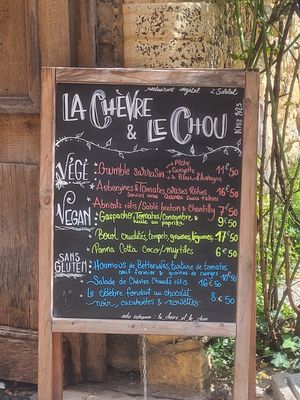 restaurant végétal à Sarlat
LA CHÈVRE
& LE CHOU
VÉGÉ
Crumble sarrasin
Pêche
Courgette
& Bleu d'Auvergne
11€50
Aubergines & Tomates cerises Rôties
16€50
Abricots rôtis / Sablé breton & Chantilly
7€50
VEGAN
Gaspacho Tomates/Concombre &
huile au paprika
9€50
Bowl crudités, tempeh, graines, légumes
17€50
Panna Cotta coco/myrtilles
6€50
SANS
GLUTEN
Houmous de Betterave, tartare de tomates,
œuf fermier & graines de courges
10€50
Salade de Chèvres Chauds rôtis 16€50
Le célèbre fondant au chocolat
noir, cacahuètes & noisettes
8€50
notre instagram : la chevre et le chou